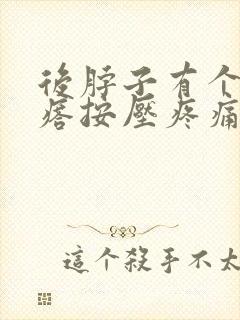 後脖子有个
痞按壓疼痛
這个殺手不太